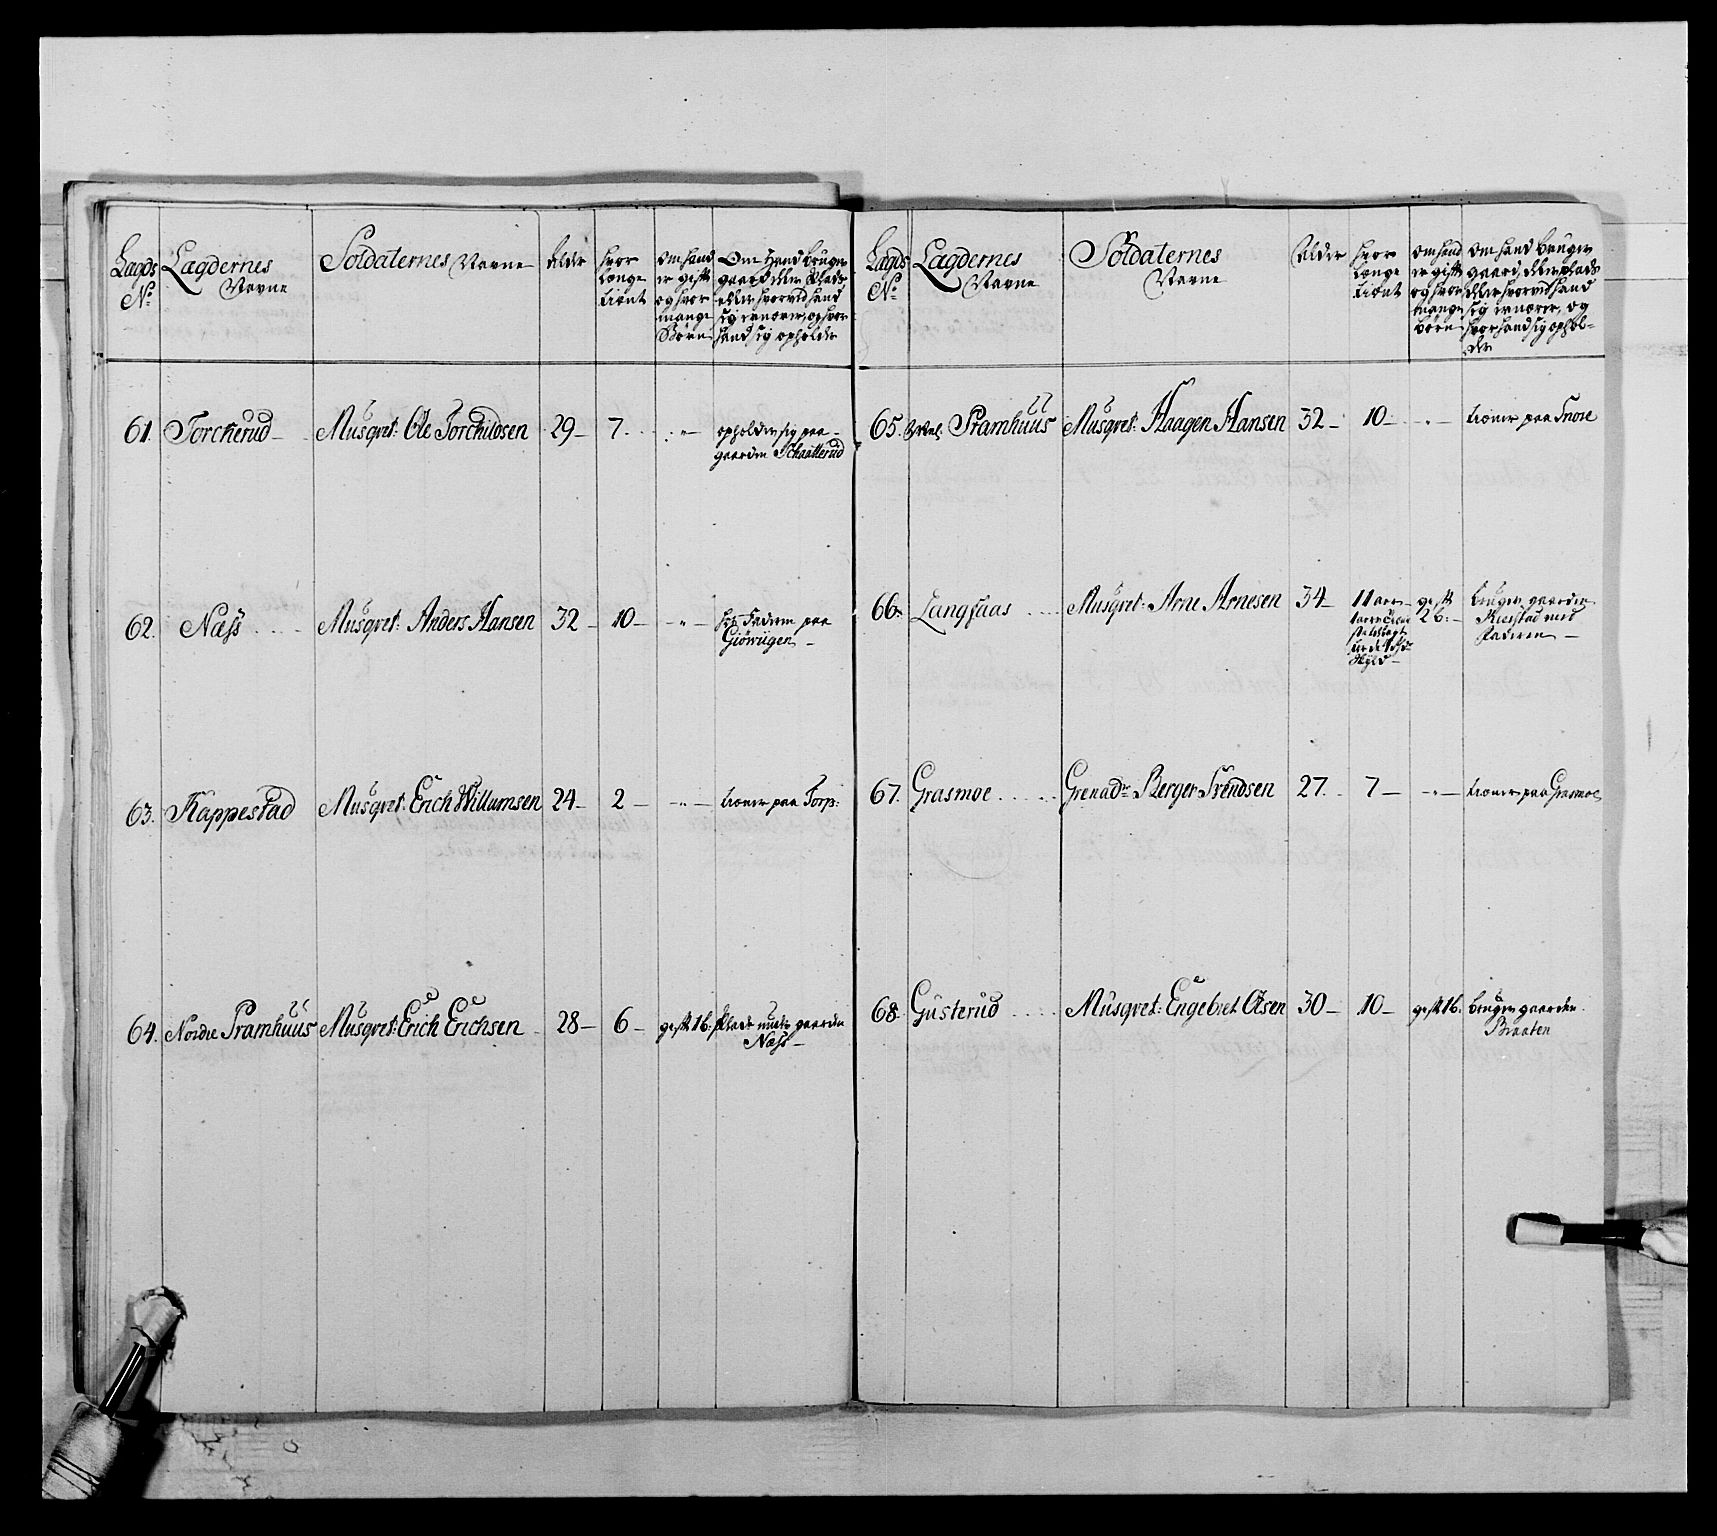 Lægds Lægdernes Soldaternes Navne Alder hvor om hand Om Hand bruger
No Navne længe er gift gaard eller Plads
tient og hvor eller hvorved hand
mange sig ernærer, og hvor
Børn hand sig opholder
61. Torckerud Musqret: Ole Torchildsen 29 7 " opholder sig paa
gaarden Schatterud
62. Næss Musqret: Anders Hansen 32 10 " hos Faderen paa
Giöwiigen
63. Kappestad Musqret: Erich Willumsen 24 2 " tiener paa Torp:
64. Nordre Pramhuus Musqret: Erich Erichsen 28 6 gift 1 b: Plads under gaarden
Næss
Lægds Lægdernes Soldaternes Alder hvor om hand om hand bruger
No Navne Navne længe er gift gaard, eller plads
tient og hvor eller hvorved hand
mange sig ernærer, og
börn hvor hand sig ophol-
der
65. Pramhuus Musqret: Haagen Hansen 32 10 " tiener paa Tnore
66. Langsaas Musqret: Arne Arnesen 34 11 aar gift bruger gaarden
2 b: Kierstad med
Faderen
67. Grasmoe Grenadr Berger Svendsen 27 7 " tiener paa Grasmoe
68. Gusterud Musqret: Engebret Olsen 30 10 gift 1 b. bruger gaarden
Braaten